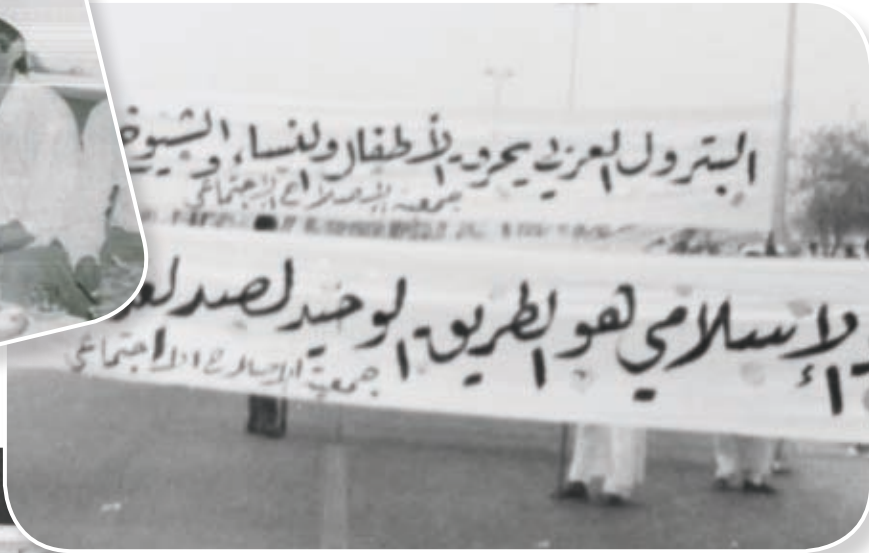 البترول العربي يحرق الأطفال والنساء والشيوخ
جمعية الإصلاح الإجتماعي
الإسلامي هو الطريق الوحيد لصد
جمعية الإصلاح الاجتماعي